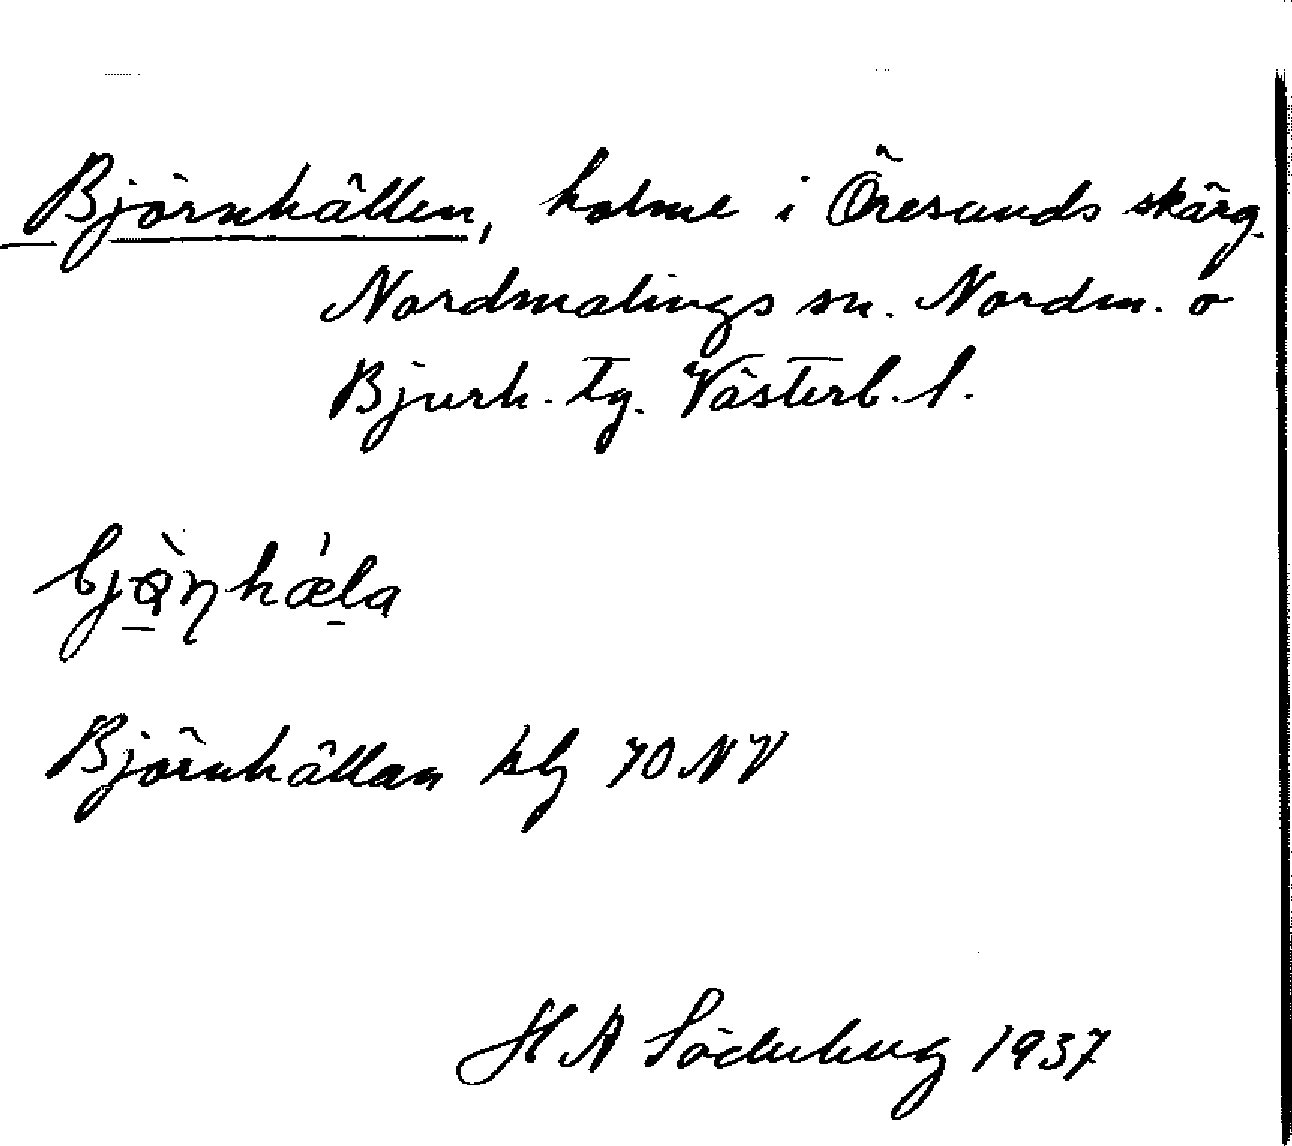 Björnhällen, holme i Öresunds skärg.
Nordmalings sn. Nordm. o
Bjurh. tg. Västerb. l.
bjö̀ṇhǽla
Björnhällan kbl 70 NV
H A Söderberg 1937